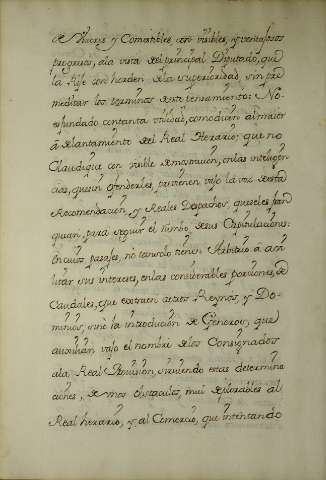 de Viveres y Comestibles, con visibles, y ventajosos
progresos, ala vista del principal Diputado, que
la rije con horden dela superioridad, sin pre
meditar los terminos deste pensamiento: No
es fundado contanta utilidad, como dicen al maior
adelantamiento del Real Herario; que no
Claudique con visible diminucion, enlas inteligen
cias, que sin ofenderles, previenen vajo la voz desta
Recomendacion, y Reales Despachos, que seles fran
quian, para seguir el rumbo desus Capitulaciones:
En cuios pasajes, no tansolo tienen Arbitrio a
litar sus intereses, enlas considerables porciones, de
Caudales, que extraen aestos Reynos, y Do-
minios, sino la introducion de Generos, que
auxilian vajo el nombre delos Consignados
ala Real Provision, sirviendo estas determina
ciones, de unos obstaculos, mui deplorables al
Real herario, y al Comercio, que intentando